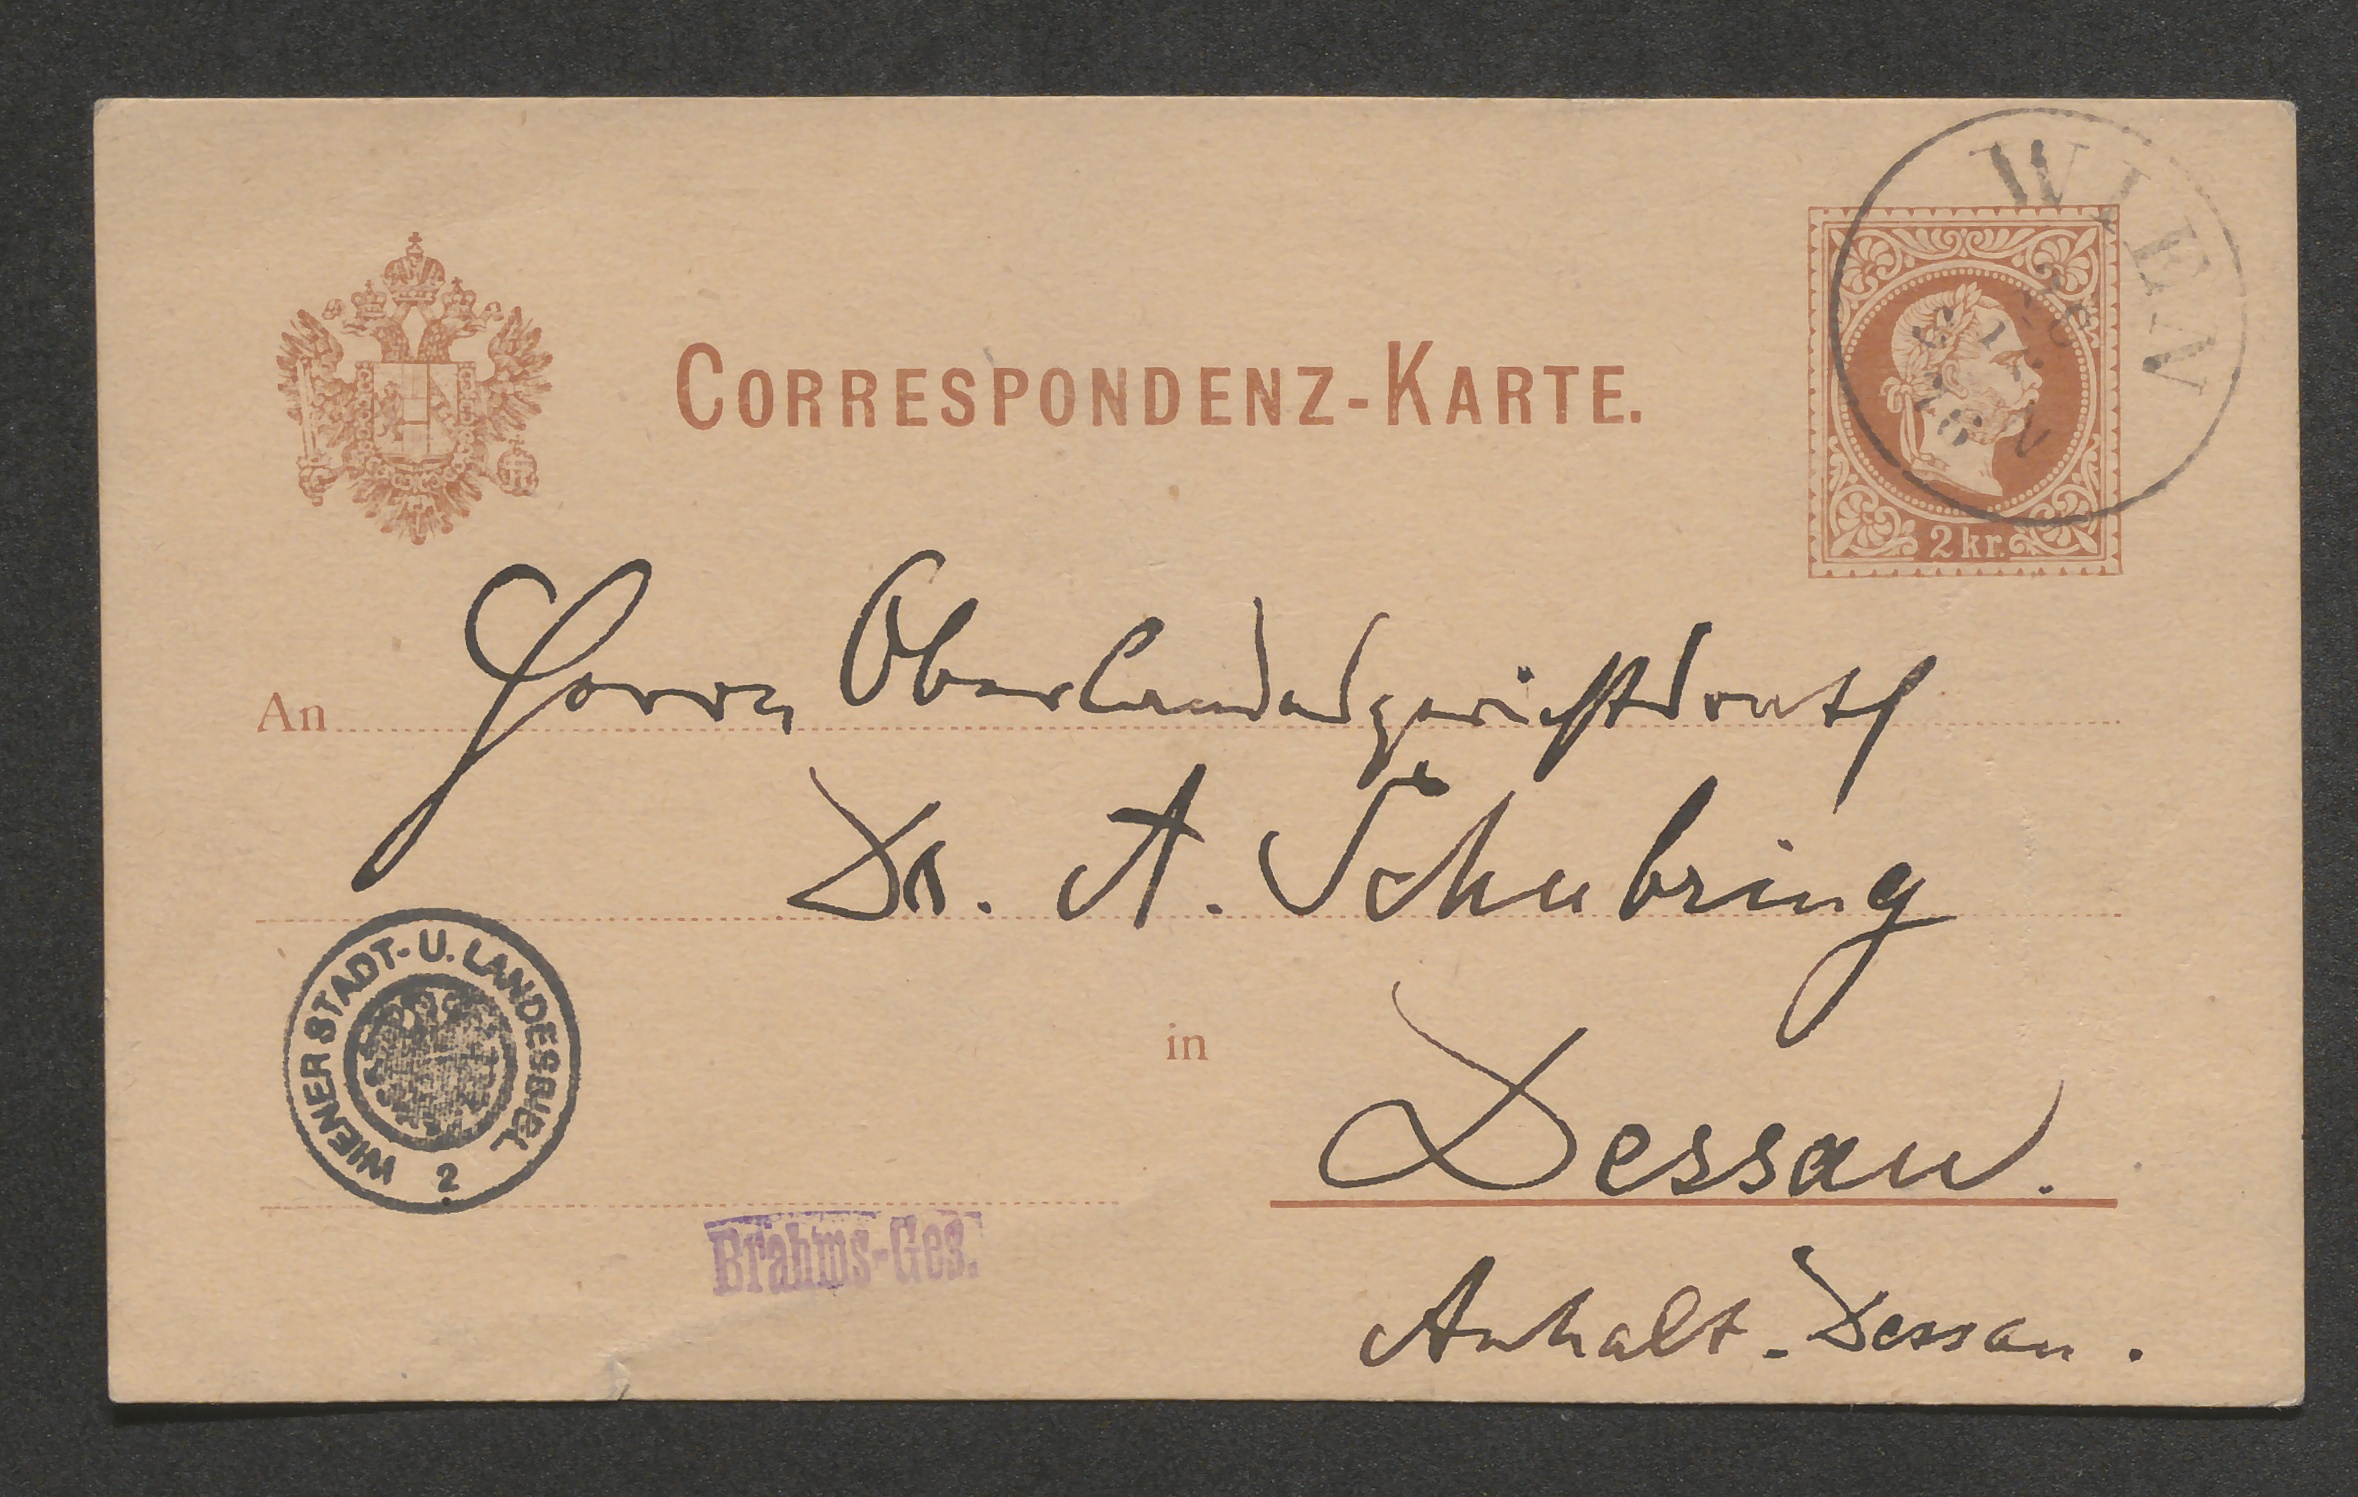 WIEN
CORRESPONDENZ-KARTE.
2 kr.
An Herrn Oberlandesgerichtsrath
Dr. A. Schubring
WIENER STADT- U. LANDESBIBL
2
in Dessau.
Brahms-Ges.
Anhalt-Dessau.